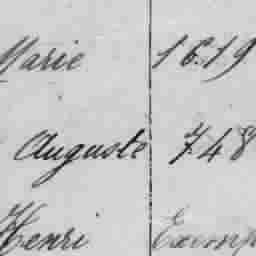 Marie 16.19
Auguste 7.48
Henri Exemp